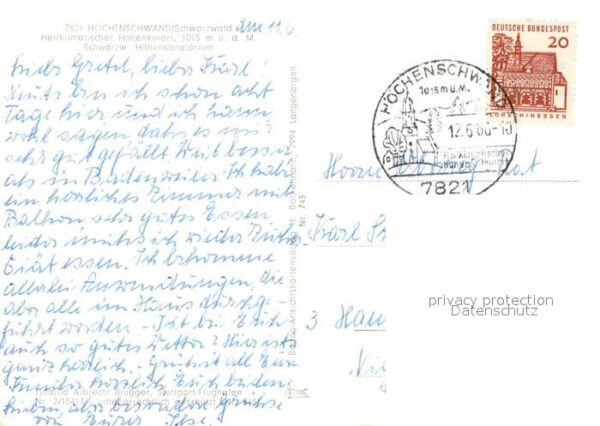 7821 HÖCHENSCHWAND/Schwarzwald
Heilklimatischer Höhenkurort, 1015 m ü. d. M.
Schwarzw. Höhensanatorium
am 11.6.
Liebe Gretel, lieber Karl!
Heute bin ich schon acht
Tage hier und ich kann
wohl sagen daß es mir
sehr gut gefällt. Weit besser
als in Badenweiler. Ich habe
ein herrliches Zimmer mit
Balkon sehr gutes Essen
leider muß ich wieder
Diät essen. Ich bekomme
allerlei Anwendungen, die
aber alle im Haus durchge-
führt werden. - Ist bei Euch
auch so gutes Wetter? Hier ist
ganz herrlich. - Grüßt all Eure
Kinder herzlich. Euch beiden
Lieben aber besondere Grüße
von Eurer Ilse.
Luftbild Albrecht Brugger, Stuttgart-Flughafen
Nr. 745
DEUTSCHE BUNDESPOST
20
LORSCH/HESSEN
HÖCHENSCHWAND
1015 m ü. M.
12.6.66-10
7821
Herrn
Karl
3 Han
privacy protection
Datenschutz